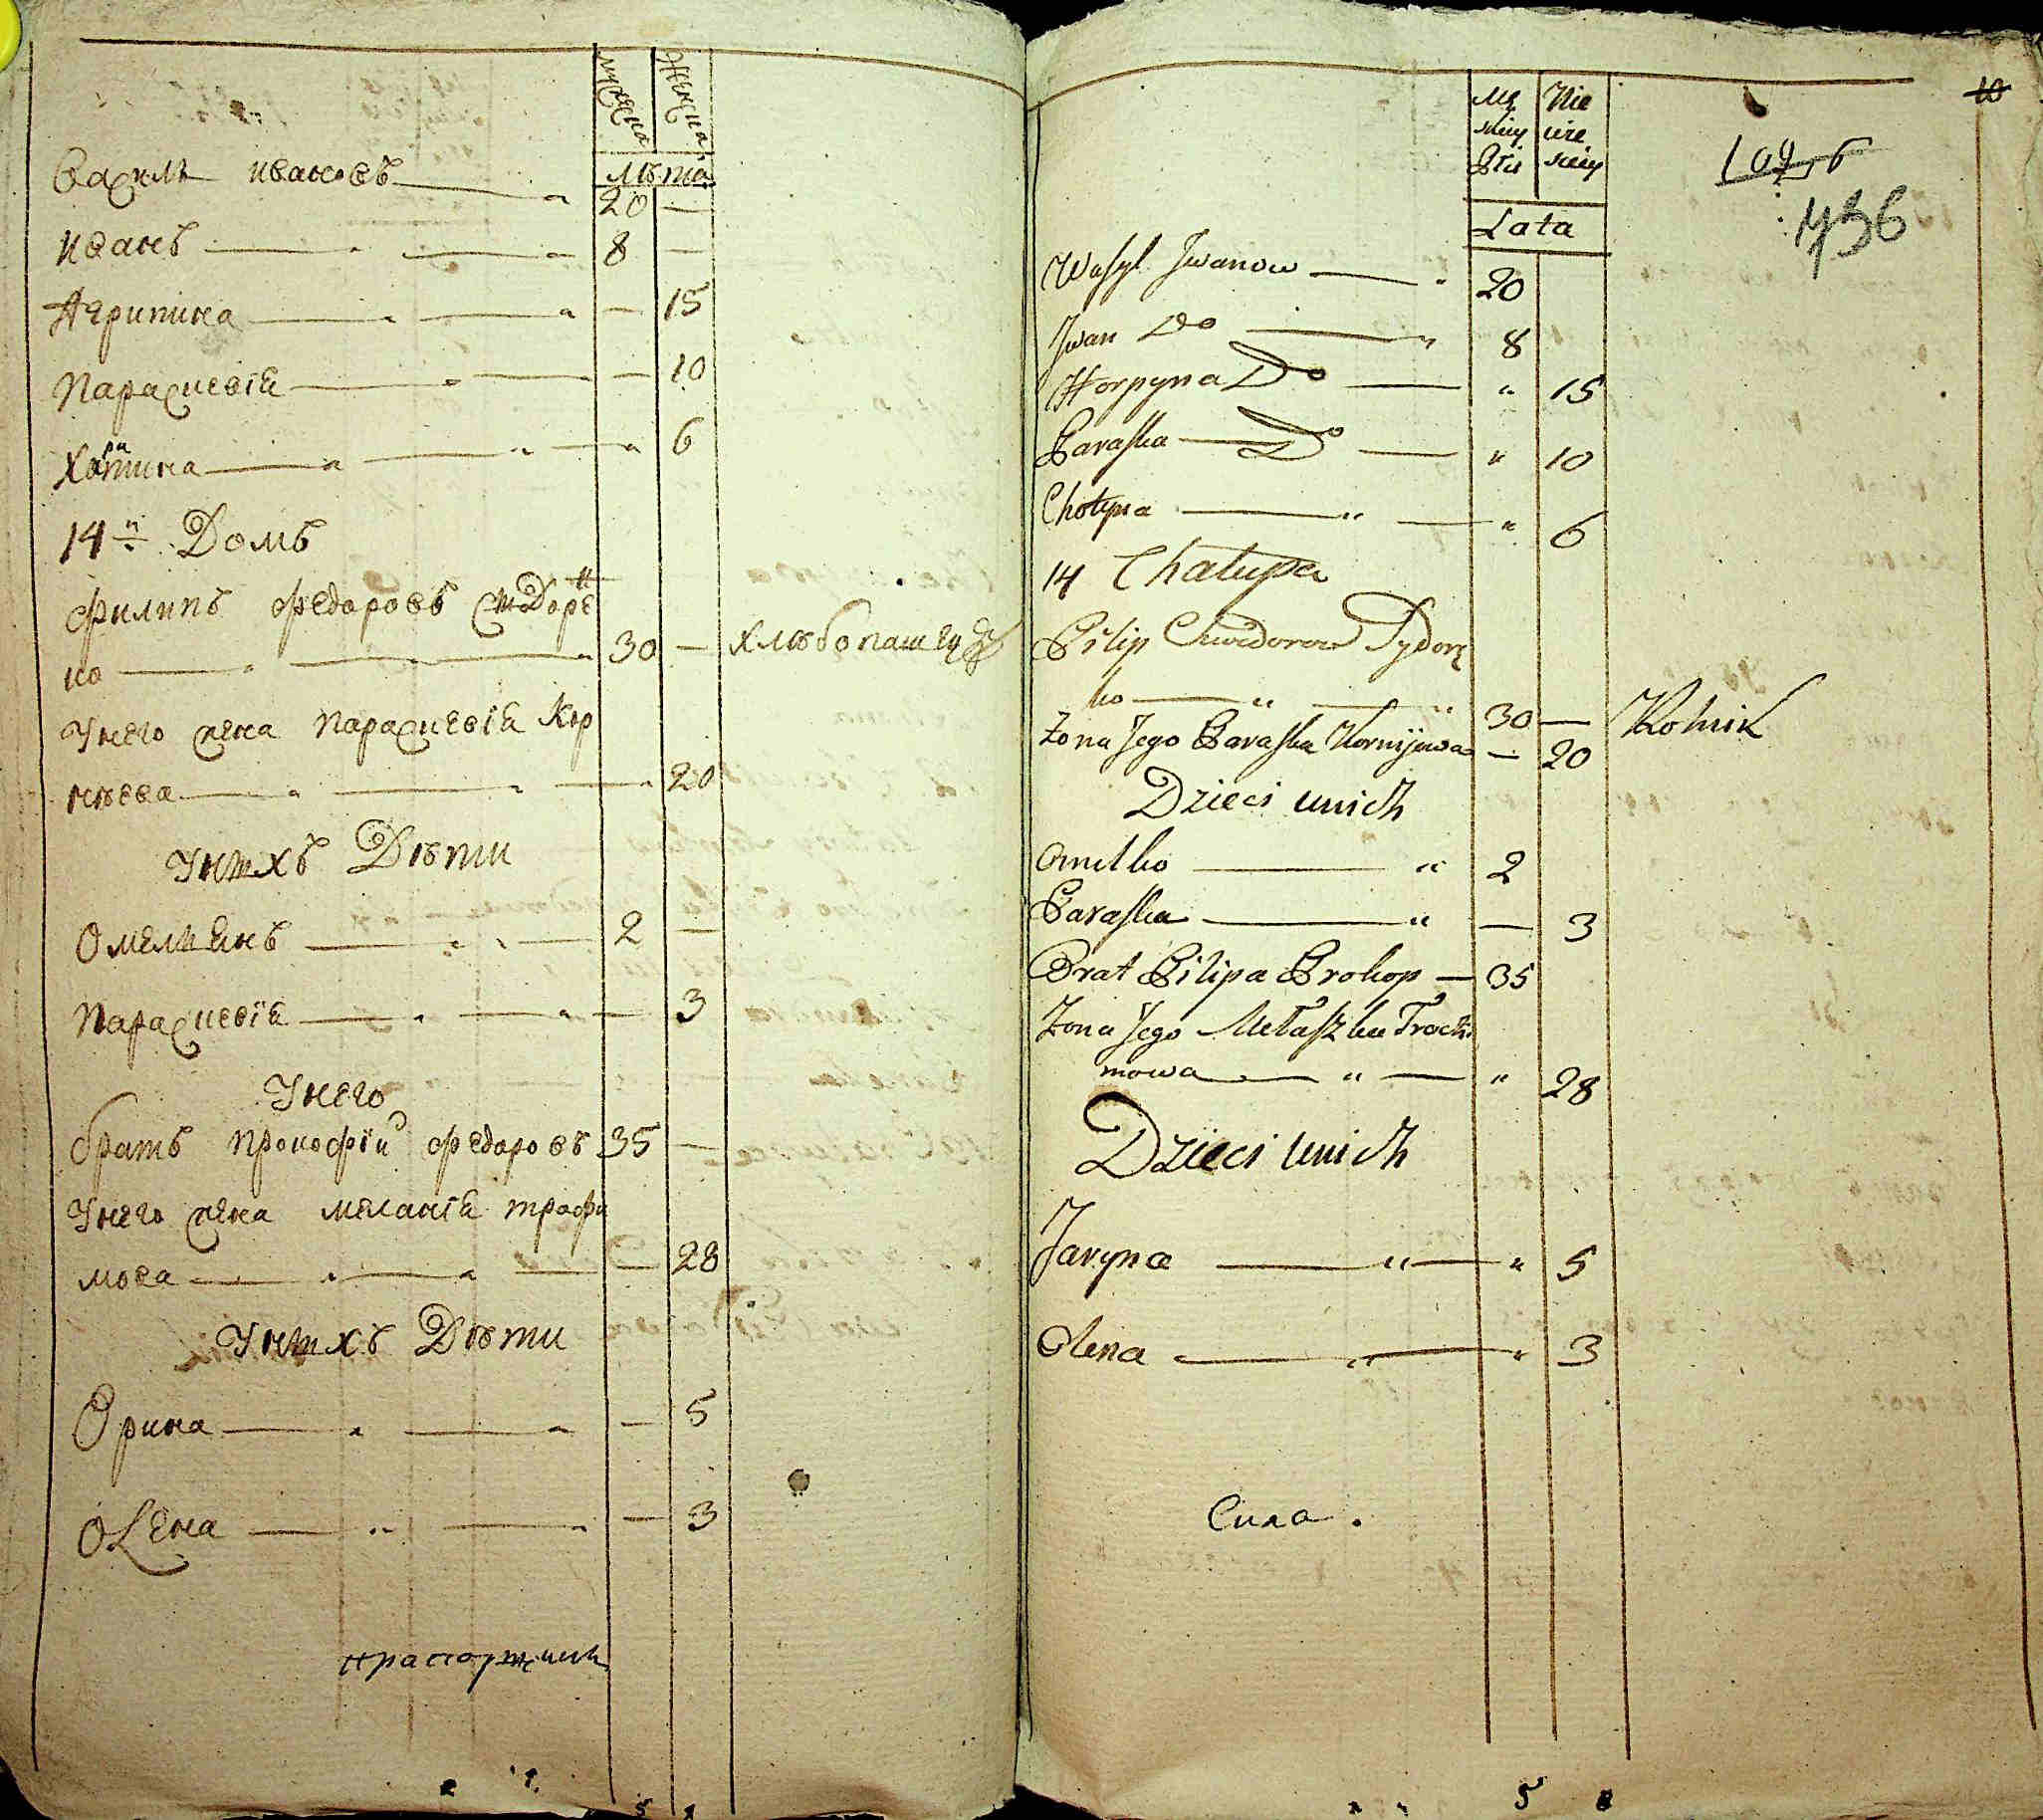 мужеска женска
лѣта
Василь Ивановъ 20 —
Иванъ 8 —
Агрипина — 15
Параскевія — 10
ри
Хотина — 6
14й Домъ
Филипъ Федоровъ Сидорен
ко 30 — хлѣбопашецъ
Унего жена Параскевія Кор
нѣева 20
Унихъ Дѣти
Омелианъ 2 —
Параскевїя — 3
Унего
братъ Прокофїй Федоровъ 35 —
Унего жена меланія трофи
мова — 28
Унихъ Дѣти
Орина — 5
оLена — 3
10
736
Lata
Wasyl Jwanow 20
Jwan Do 8
Horpyna Do " 15
Paraska Do " 10
Chotyna " 6
14 Chałupa
Pilip Chwedorow Sydorę
ko 30 — Rolnik
Żona Jego Paraska Kornijowa — 20
Dzieci unich
Omelko 2
Paraska — 3
Brat Pilipa Prokop — 35
Żona Jego Mełaszka Trochi
mowa " 28
Dzieci unich
Jaryna " 5
Olena " 3
Сила.